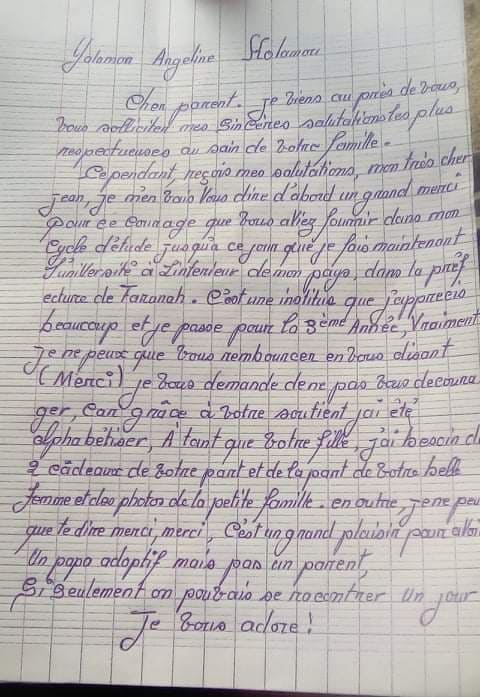 Yolamou Angeline Holamou
Cher parent. Je viens au près de vous,
vous solliciter mes sincères salutations les plus
respectueuses au sain de votre famille.
Cependant, reçois mes salutations, mon très cher
jean, je m'en vais vous dire d'abord un grand merci
pour ce courage que vous allez fournir dans mon
cycle d'étude jusqu'a ce jour que je fais maintenant
l'université à l'interieur de mon pays, dans la préf
ecture de Faranah. C'est une institus que j'apprecis
beaucoup et je passe pour la 3ème Année, Vraiment
je ne peux que vous rembourcer en vous disant
(Merci) je vous demande de ne pas vous decoura
ger, car grâce à votre soutient j'ai été
alphabétiser, À tant que votre fille, j'ai bescin d
2 câdeaux de votre part et de la part de votre belle
femme et des photos de la petite famille. en outre, je ne peu
que te dire merci, merci, C'est un grand plaisir pour
Un papa adoptif mais pas un parent,
Si seulement on pouvais se racontrer Un jour
Je vous adore!